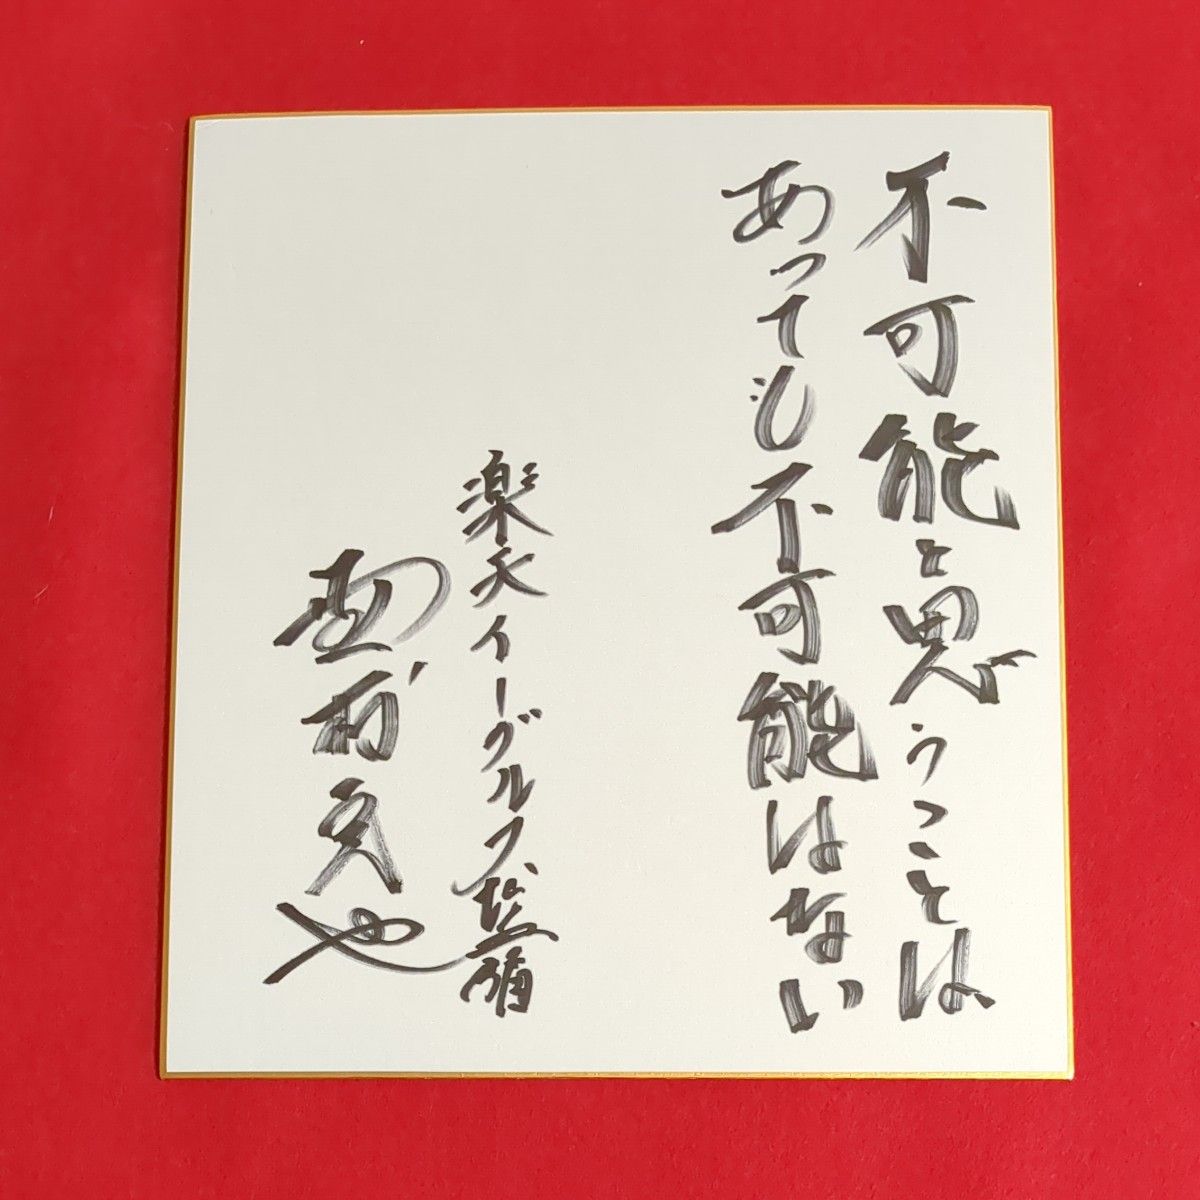 不可能と思うことは
あっても不可能はない
楽天イーグルス監督
野村克也